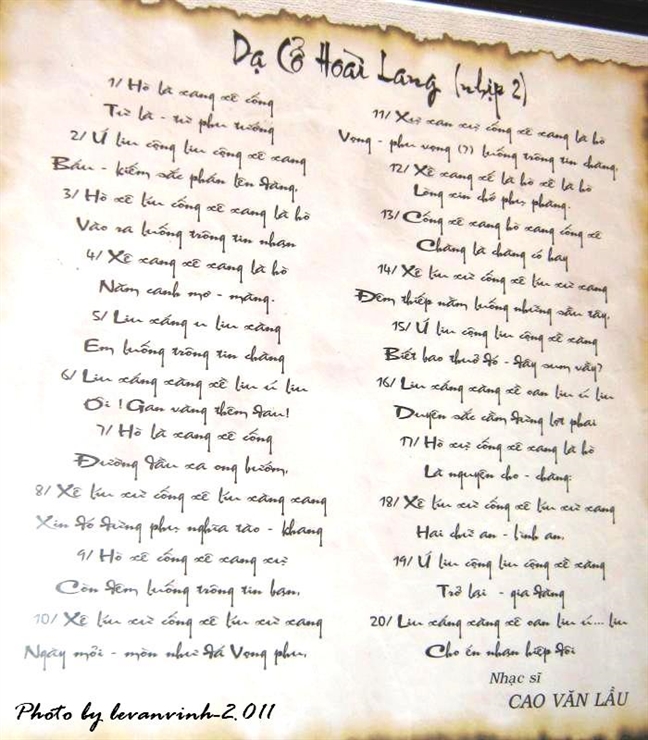 Dạ Cổ Hoài Lang (nhịp 2)
1/ Hò là xang xê cống
Từ là - từ phu tướng
2/ Ú liu cộng liu cộng xê xang
Báu - kiếm sắc phán lên đàng.
3/ Hò xê líu cống xê xang là hò
Vào ra luống trông tin nhạn
4/ Xê xang xê xang là hò
Năm canh mơ - màng.
5/ Liu xáng u liu xàng
Em luống trông tin chàng
6/ Liu xáng xàng xê liu ú liu
Ôi ! Gan vàng thêm đau!
7/ Hò là xang xê cống
Đường dầu xa ong bướm,
8/ Xê líu xừ cống xê líu xàng xang
Xin đó đừng phụ nghĩa tào - khang
9/ Hò xê cống xê xang xự
Còn đêm luống trông tin bạn,
10/ Xê líu xừ cống xê líu xừ xang
Ngày mỏi - mòn như đá Vọng phu,
11/ Xự xan xự cống xê xang là hò
Vọng - phu vọng (?) luống trông tin chàng,
12/ Xê xang xế là hò xê là hò
Lòng xin chớ phụ phàng.
13/ Cống xê xang hò xang cống xê
Chàng là chàng có hay
14/ Xê líu xừ cống xê líu xừ xang
Đêm thiếp nằm luống những sầu tây,
15/ Ú liu cộng liu cộng xề xàng
Biết bao thuở đó - đây sum vầy?
16/ Liu xáng xàng xề oan liu ú liu
Duyên sắc cầm đừng lợt phai
17/ Hò xự cống xê xang là hò
Là nguyện cho - chàng:
18/ Xê líu xừ cống xê líu xừ xang
Hai chữ an - bình an,
19/ Ú liu cộng liu cộng xề xàng
Trở lại - gia đàng
20/ Liu xáng xàng xề oan liu ú... liu
Cho én nhạn hiệp đôi
Nhạc sĩ
CAO VĂN LẦU
Photo by levanvinh-2.011